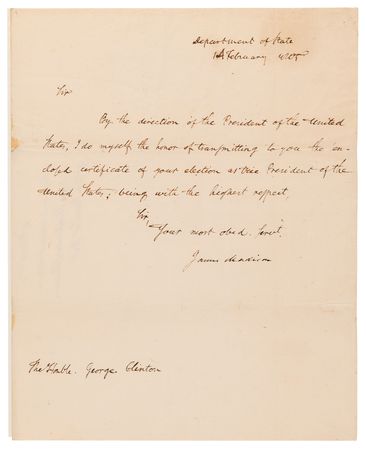 Department of State
February 1805
Sir
By the direction of the President of the United
States, I do myself the honor of transmitting to you the en-
closed certificate of your election as Vice President of the
United States; being with the highest respect,
Sir,
Your most obed. Servt.
James Madison
The Honble. George Clinton